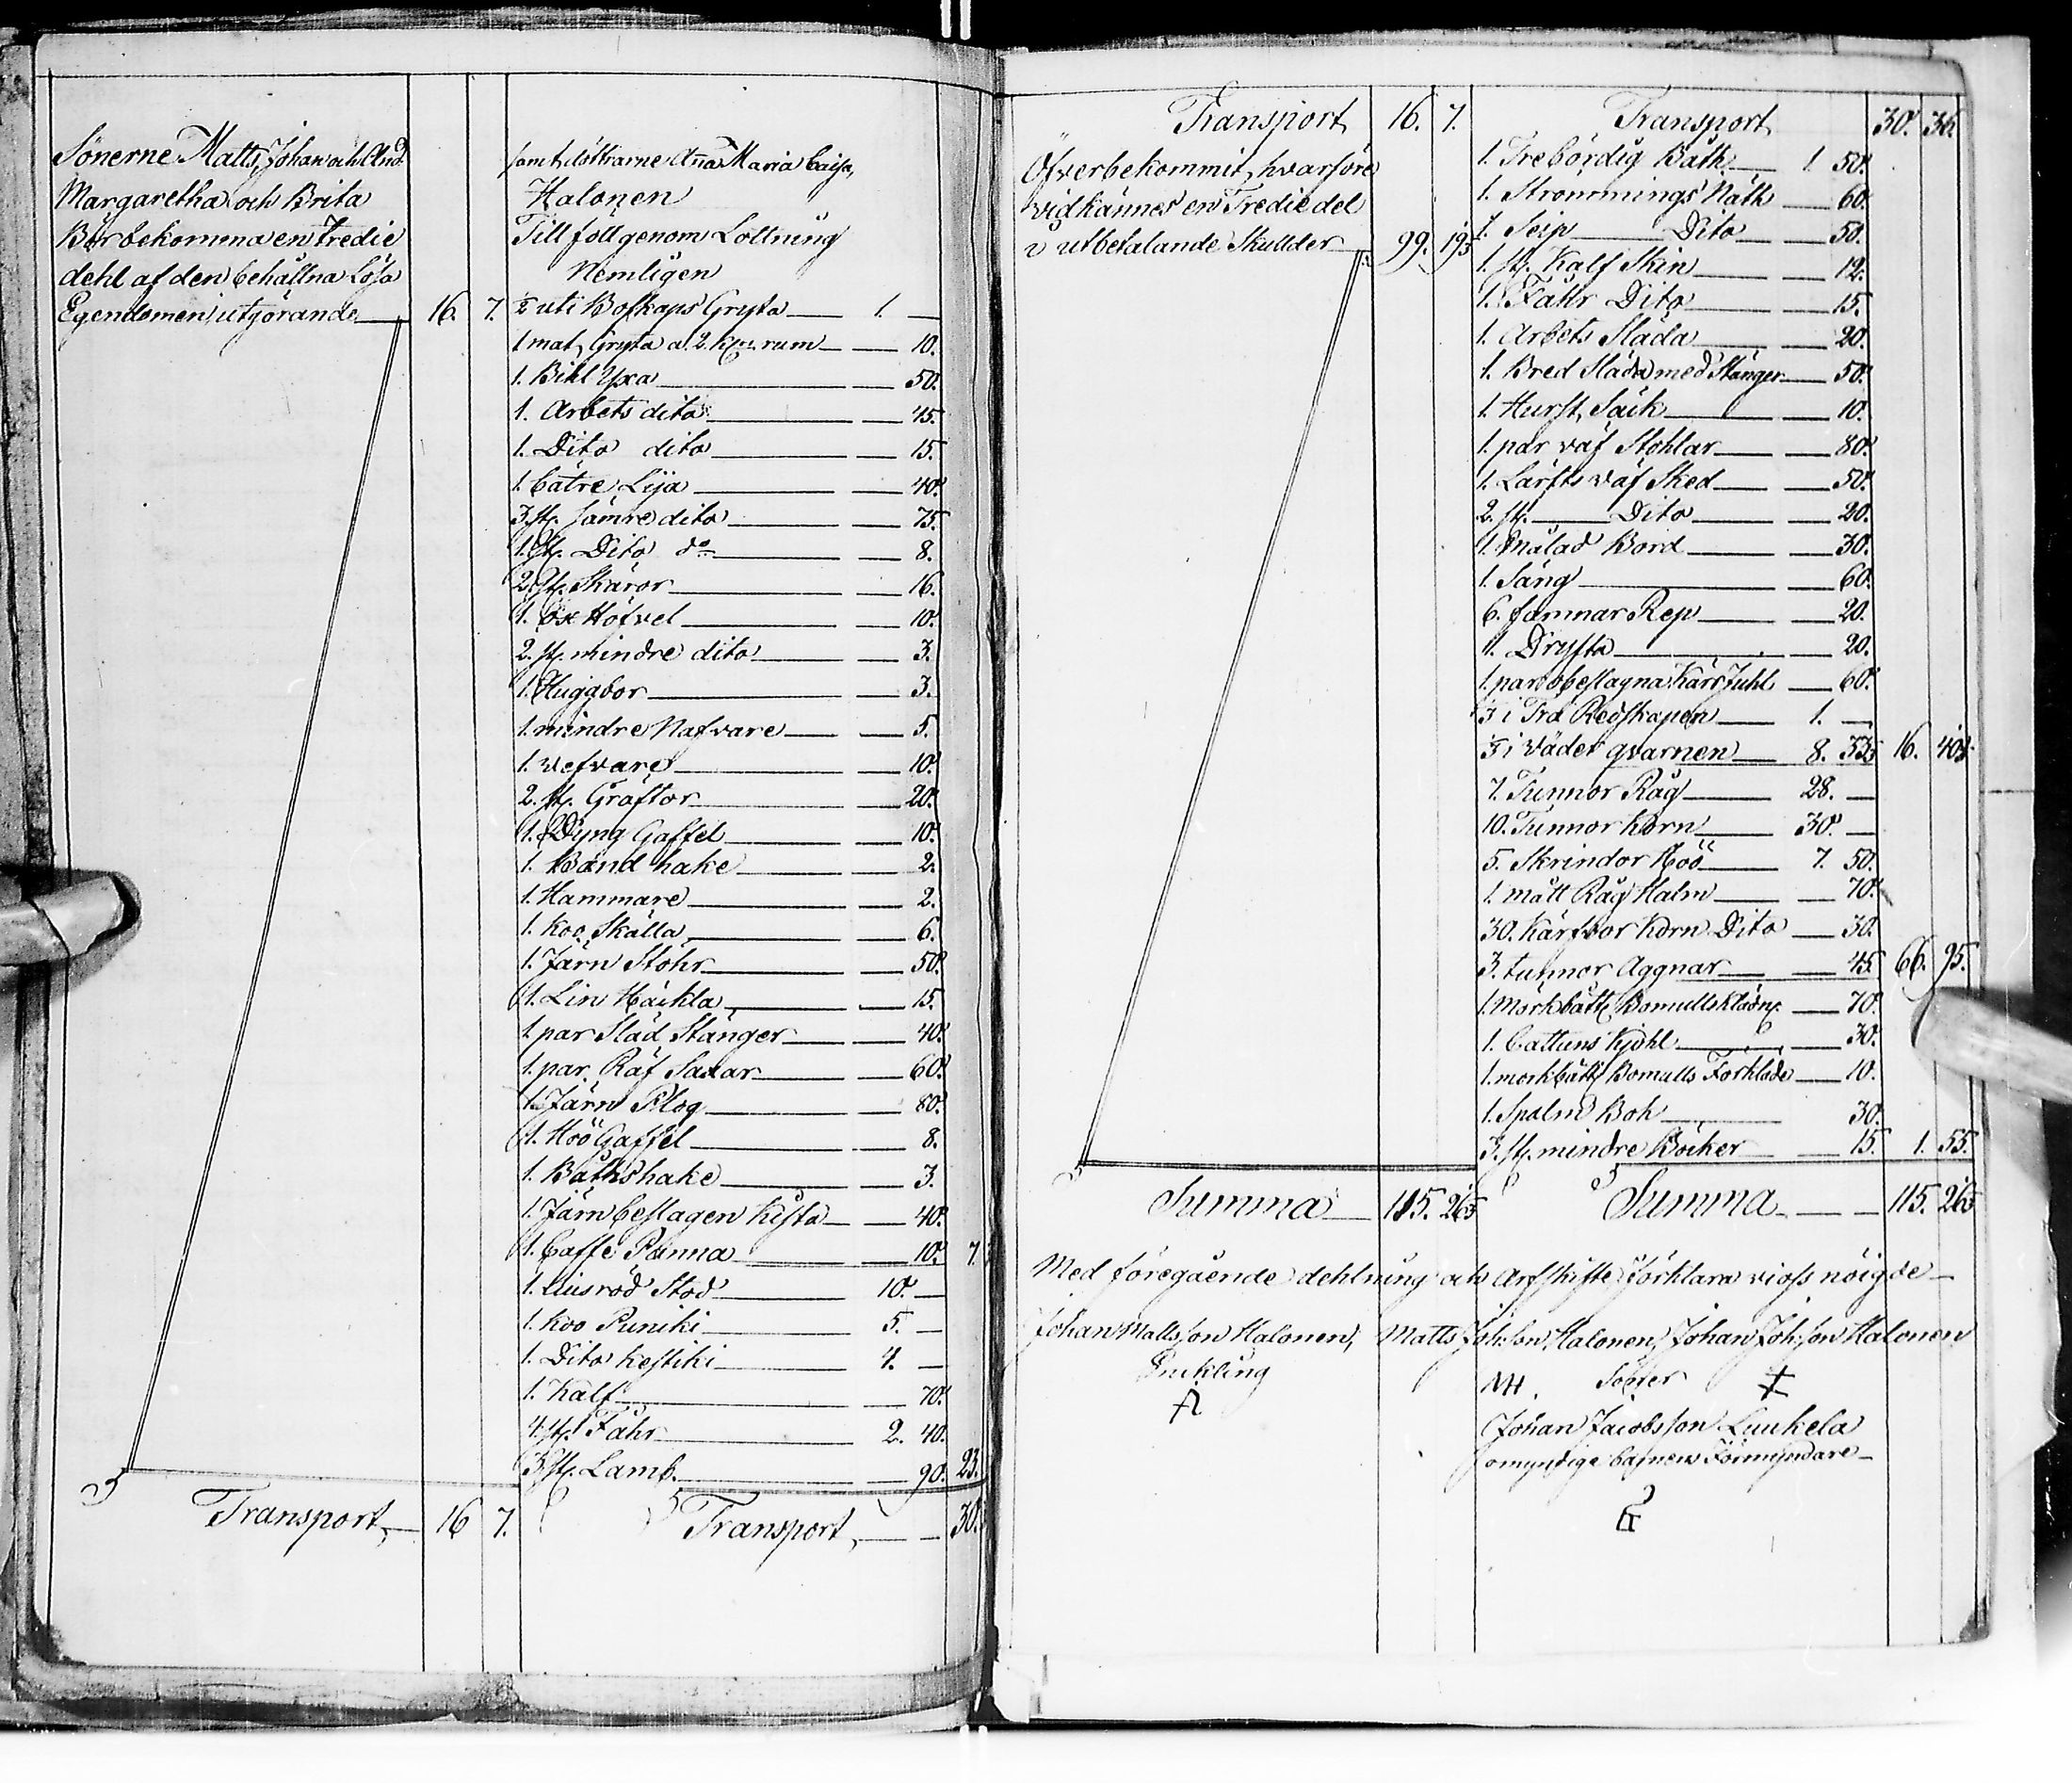 Sönerne Matts, Johan och And:
Margaretha och Brita
Bör bekomma en Tredie
dehl af den behållna Lösa
Egendomen utgörande 16. 7.
Transport 16 7.
samt döttrarne Aña Maria Caisa,
Halonen
Till föll genom Lottning
Nemligen
uti Boskaps Gryta 1. —
1 mat Gryta a 2. rum — 10.
1. Bihl Yxa — 50.
1. Arbets dito — 45.
1. Dito dito — 15.
1. bätre Lija — 40.
3. st. sämre dito — 75.
1. st. Dito do — 8.
2. st. Skäror — 16.
1. Ox Höfvel — 10.
2. st. mindre dito — 3.
1. Huggbor — 3.
1. mindre Nafvare — 5.
1. vefvare — 10.
2. st. Gräftor — 20.
1. Dyng Gaffel — 10.
1. Band hake — 2.
1. Hammare — 2.
1. Koo Skälla — 6.
1. Järn Stöhr — 50.
1. Lin Häckla — 15.
1. par Släd Stänger — 40.
1. par Räf Saxar — 60.
1. Järn Plog — 80.
1. Höö Gaffel — 8.
1. Båthshake — 3.
1. Järnbeslagen Kista — 40.
1. Caffe Panna — 10. 7.
1. Liusröd Stod 10. —
1. Koo Puniki 5. —
1. Dito Kestiki 4. —
1. Kalf — 70.
4. st. Fåhr 2. 40.
3. st. Lamb. — 90. 23.
Transport — 30.
Transport 16. 7.
Öfverbekommit, hvarföre
vidkännes en Tredie del
i utbetalande Skulder 99. 19⅓
Summa 115. 26⅓
Transport 30. 36.
1. Trebördig Båth 1. 50.
1. Strömmings Näth — 60.
1. Seip Dito — 50.
1. st. Kalf Skin — 12.
1. Fåhr Dito — 15.
1. Arbets Släda — 20.
1. Bred Släda med Stänger — 50.
1. Hurst Säck — 10.
1. par väf Stohlar — 80.
1. Lärfts väf Sked — 50.
2. st. Dito — 20.
1. Målad Bord — 30.
1. Säng — 60.
6. famnar Rep — 20.
1. Dryfta — 20.
1. par obeslagna Kärr Juhl — 60.
⅓ i Trä Redskapen 1. —
⅓ i Väder qvarnen 8. 33⅓ 16. 40⅓
7. Tunnor Råg 28. —
10. Tunnor Korn 30. —
5. Skrindor Höö 7. 50.
1. mått Råg Halm — 70.
30. Kärfvor Korn Dito — 30.
3. tunnor Aggnar — 45. 66. 95.
1. Mörkblått Bomulls Klädng. — 70.
1. Cattuns Kjohl — 30.
1. morkblått Bomulls Förkläde — 10.
1. Spalm Bok 30.
3. st. mindre Böcker — 15. 1. 55.
Summa — 115. 26⅓
Med föregående dehlning och Arfskifte förklara vi oss nöigde —
Johan Mattsson Halonen, Matts Joh:son Halonen, Johan Joh:son Halonen
Enckling
MH. Söner
Johan Jacobsson Luukela
omyndige barnens Förmyndare —